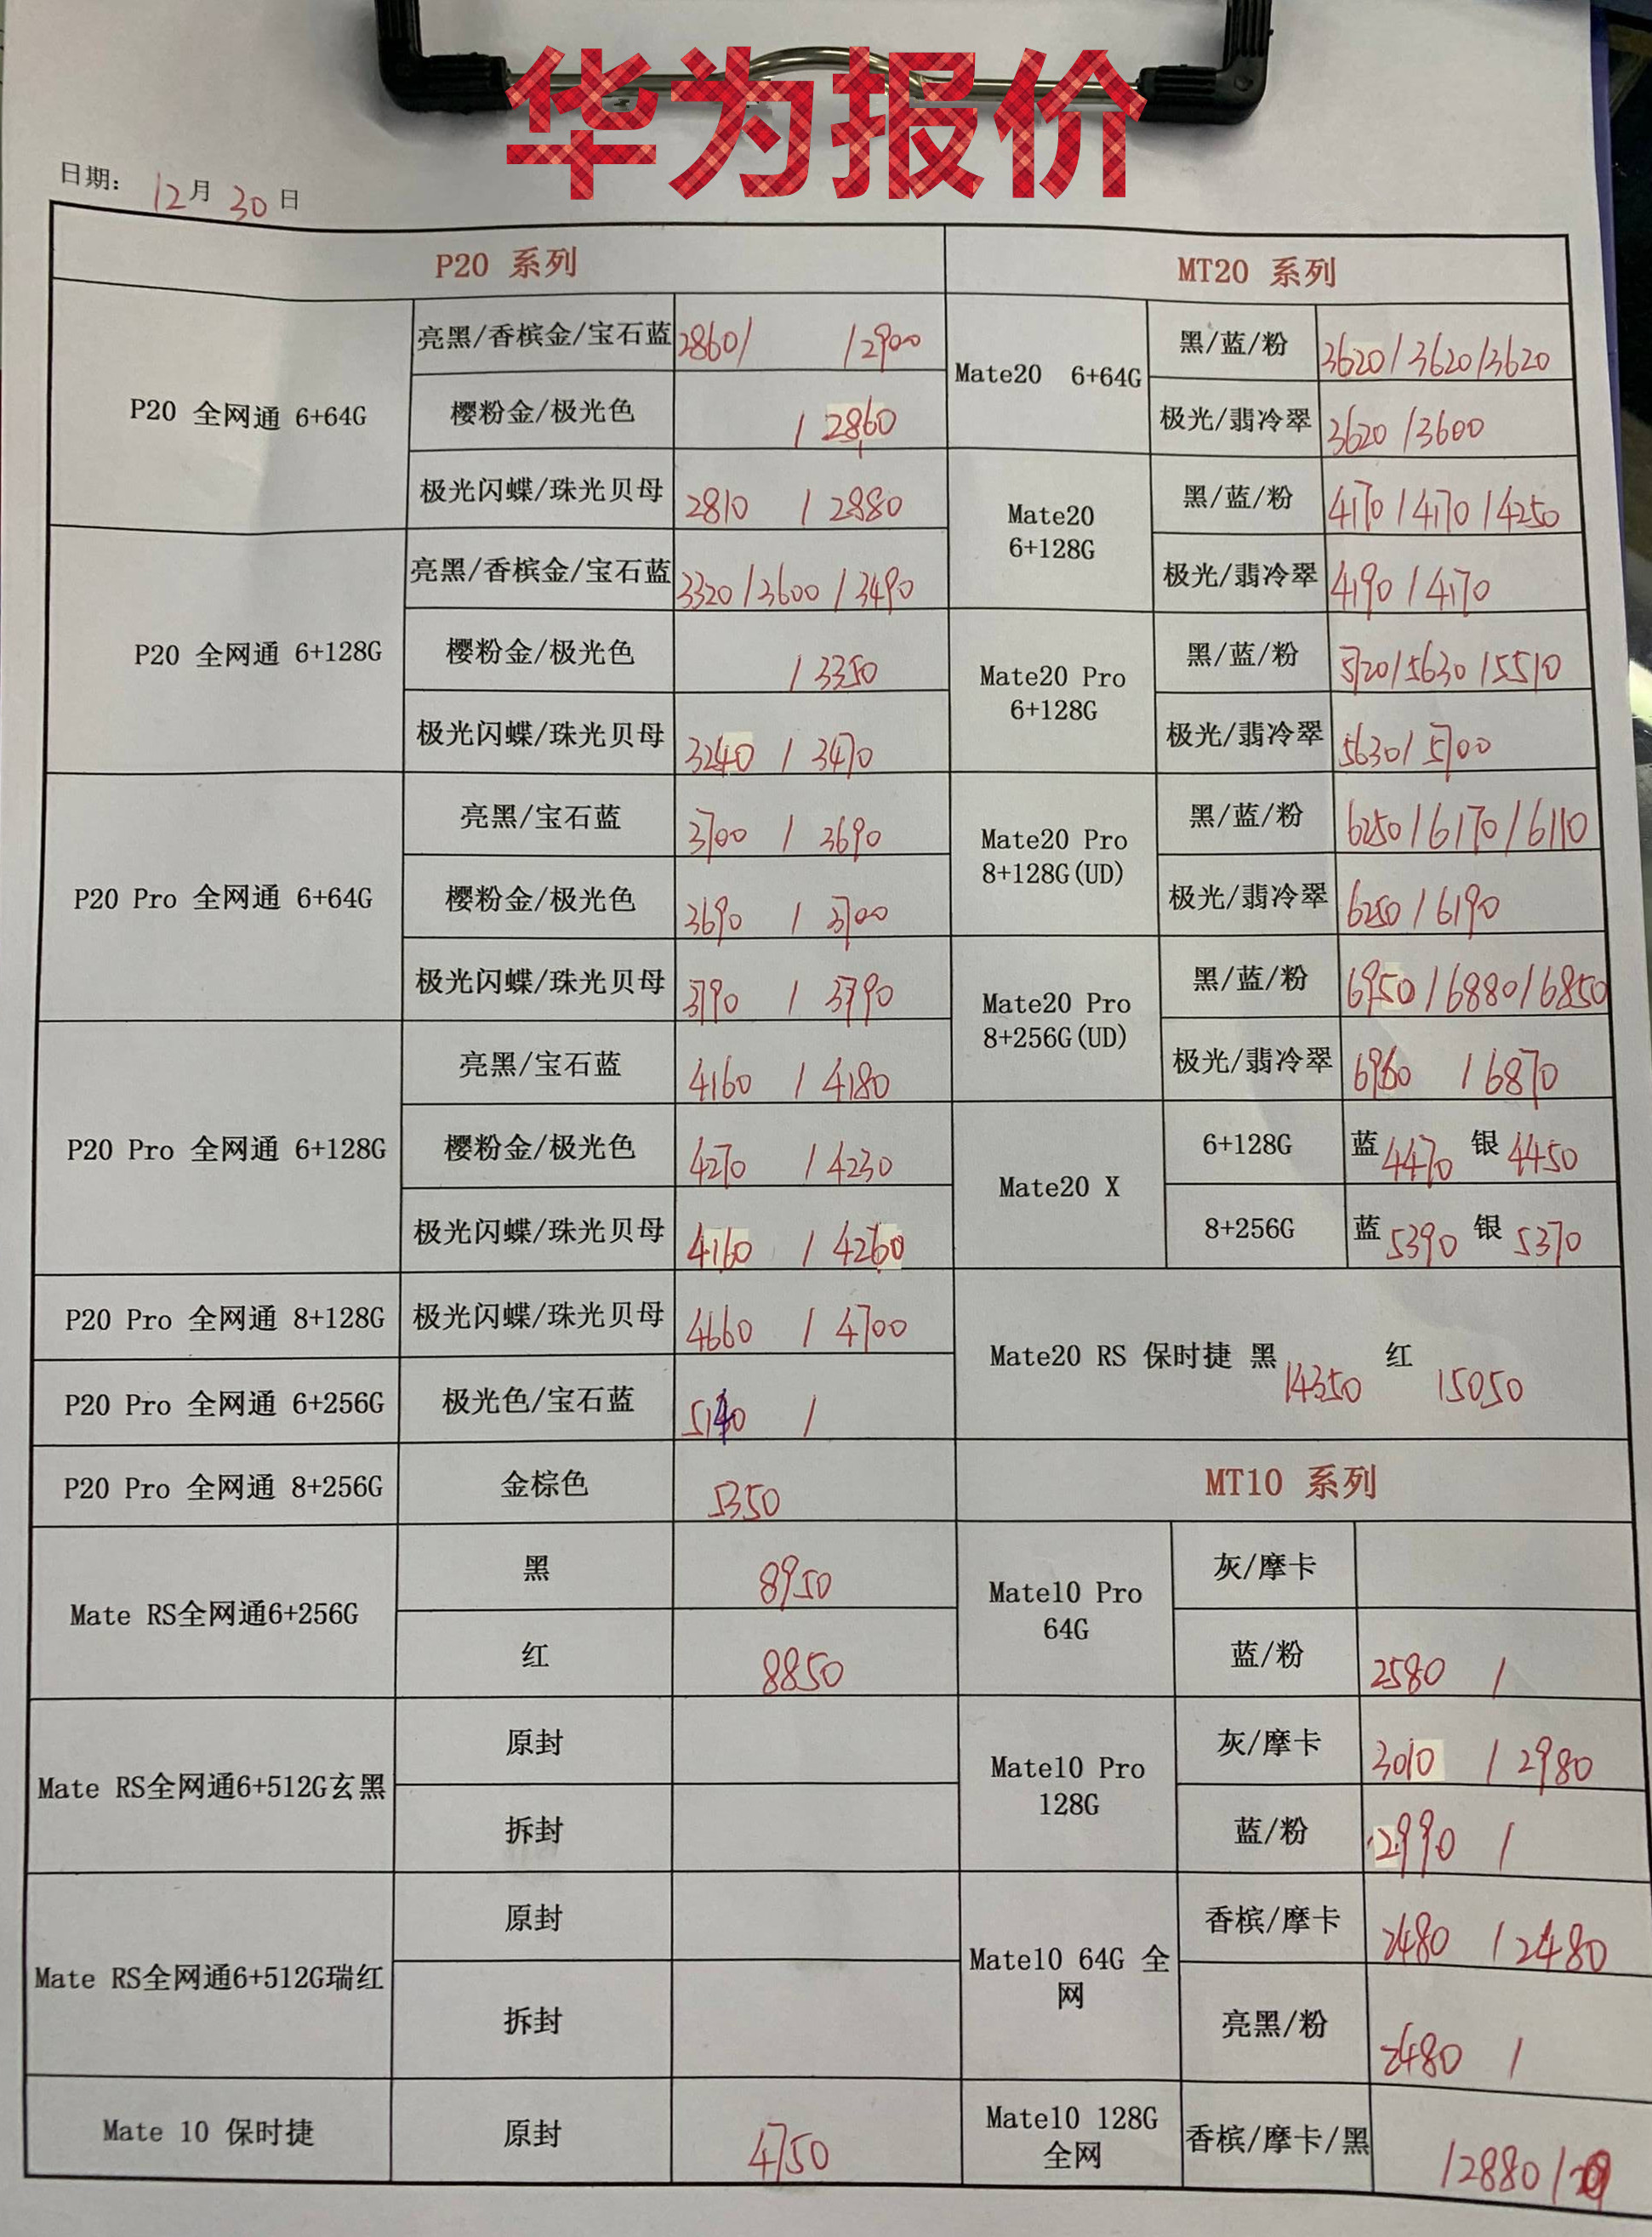 华为报价
日期： 12月 30 日
P20 系列
P20 全网通 6+64G
亮黑/香槟金/宝石蓝 2860/ /2900
樱粉金/极光色 /2860
极光闪蝶/珠光贝母 2810 /2880
P20 全网通 6+128G
亮黑/香槟金/宝石蓝 3320/3600/3490
樱粉金/极光色 /3350
极光闪蝶/珠光贝母 3240 /3470
P20 Pro 全网通 6+64G
亮黑/宝石蓝 3700 /3690
樱粉金/极光色 3690 /3700
极光闪蝶/珠光贝母 3790 /3790
P20 Pro 全网通 6+128G
亮黑/宝石蓝 4160 /4180
樱粉金/极光色 4270 /4230
极光闪蝶/珠光贝母 4160 /4260
P20 Pro 全网通 8+128G 极光闪蝶/珠光贝母 4660 /4700
P20 Pro 全网通 6+256G 极光色/宝石蓝 5140 /
P20 Pro 全网通 8+256G 金棕色 5350
Mate RS全网通6+256G
黑 8950
红 8850
Mate RS全网通6+512G玄黑
原封
拆封
Mate RS全网通6+512G瑞红
原封
拆封
Mate 10 保时捷 原封 4750
MT20 系列
Mate20 6+64G
黑/蓝/粉 3620/3620/3620
极光/翡冷翠 3620/3600
Mate20
6+128G
黑/蓝/粉 4170/4170/4250
极光/翡冷翠 4190/4170
Mate20 Pro
6+128G
黑/蓝/粉 5720/5630/5510
极光/翡冷翠 5630/5700
Mate20 Pro
8+128G(UD)
黑/蓝/粉 6250/6170/6110
极光/翡冷翠 6250/6190
Mate20 Pro
8+256G(UD)
黑/蓝/粉 6950/6880/6850
极光/翡冷翠 6960 /6870
Mate20 X
6+128G 蓝 4470 银 4450
8+256G 蓝 5390 银 5370
Mate20 RS 保时捷 黑 14350 红 15050
MT10 系列
Mate10 Pro
64G
灰/摩卡
蓝/粉 2580 /
Mate10 Pro
128G
灰/摩卡 3010 /2980
蓝/粉 2990 /
Mate10 64G 全
网
香槟/摩卡 2480 /2480
亮黑/粉 2480 /
Mate10 128G
全网
香槟/摩卡/黑 /2880/